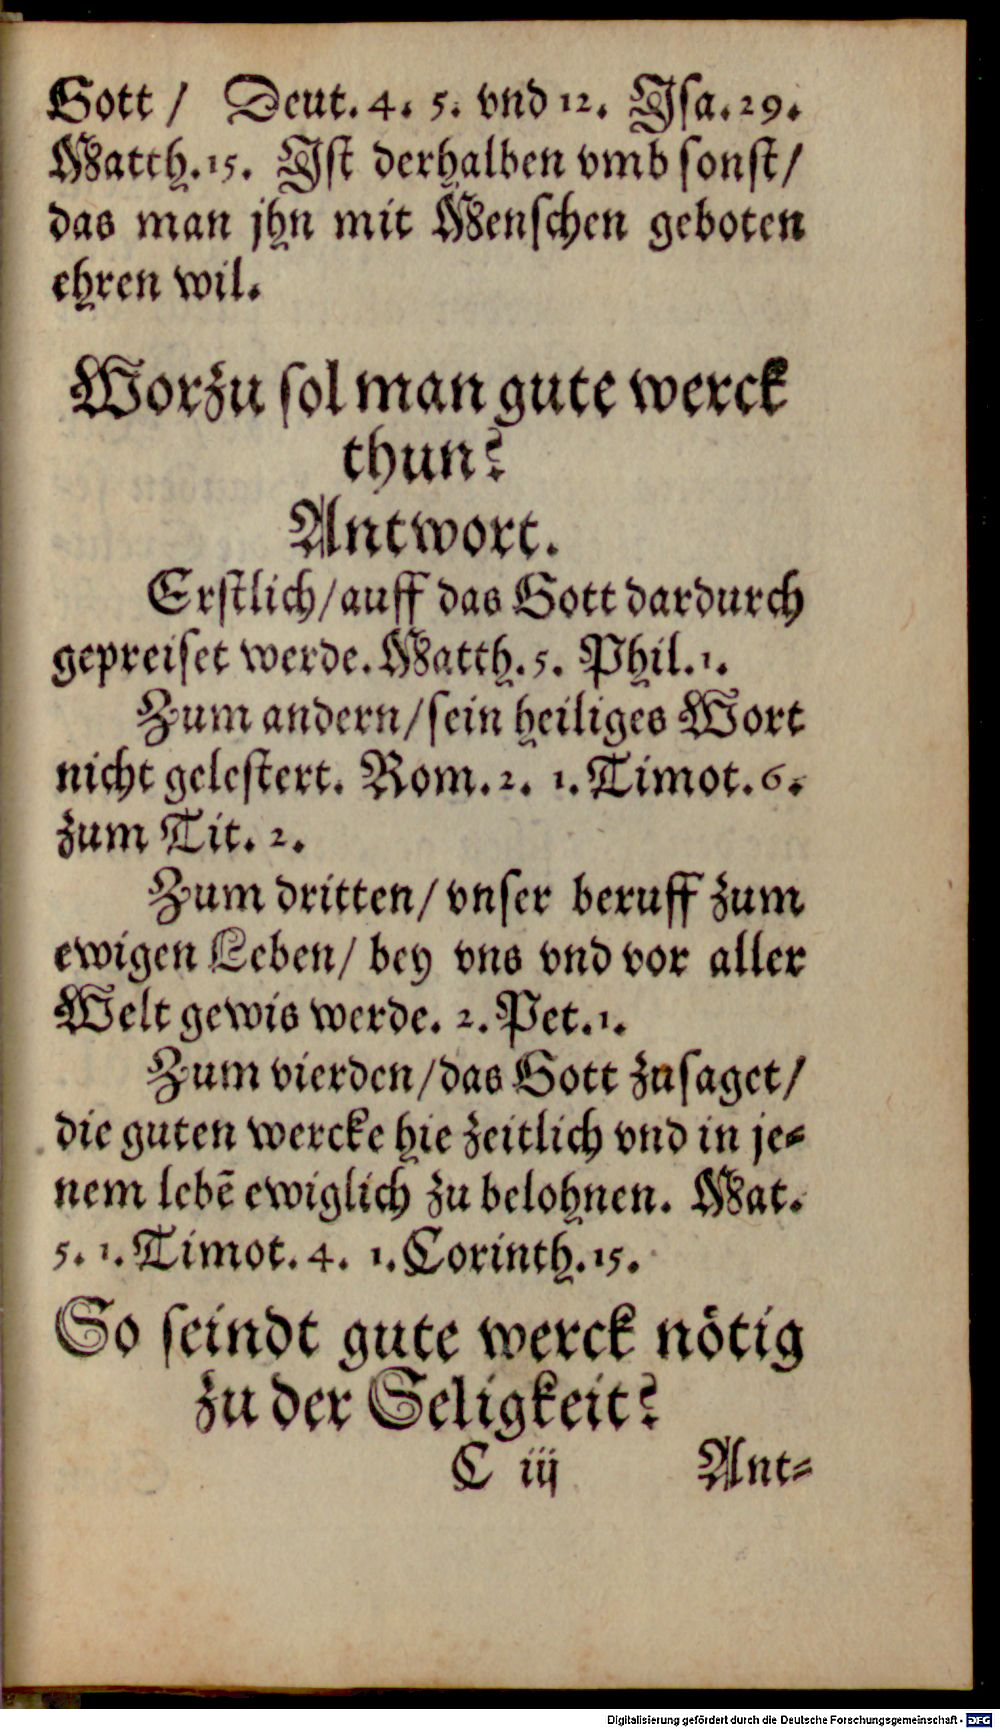 Gott / Deut. 4. 5. vnd 12. Jsa. 29.
Matth. 15. Jst derhalben vmb sonst /
das man jhn mit Menschen geboten
ehren wil.
Worzu sol man gute werck
thun?
Antwort.
Erstlich / auff das Gott dardurch
gepreiset werde. Matth. 5. Phil. 1.
Zum andern / sein heiliges Wort
nicht gelestert. Rom. 2. 1. Timot. 6.
zum Tit. 2.
Zum dritten / vnser beruff zum
ewigen Leben / bey vns vnd vor aller
Welt gewis werde. 2. Pet. 1.
Zum vierden / das Gott zusaget /
die guten wercke hie zeitlich vnd in je-
nem lebē ewiglich zu belohnen. Mat.
5. 1. Timot. 4. 1. Corinth. 15.
So seindt gute werck nötig
zu der Seligkeit?
C iij Ant-
Digitalisierung gefördert durch die Deutsche Forschungsgemeinschaft - DFG